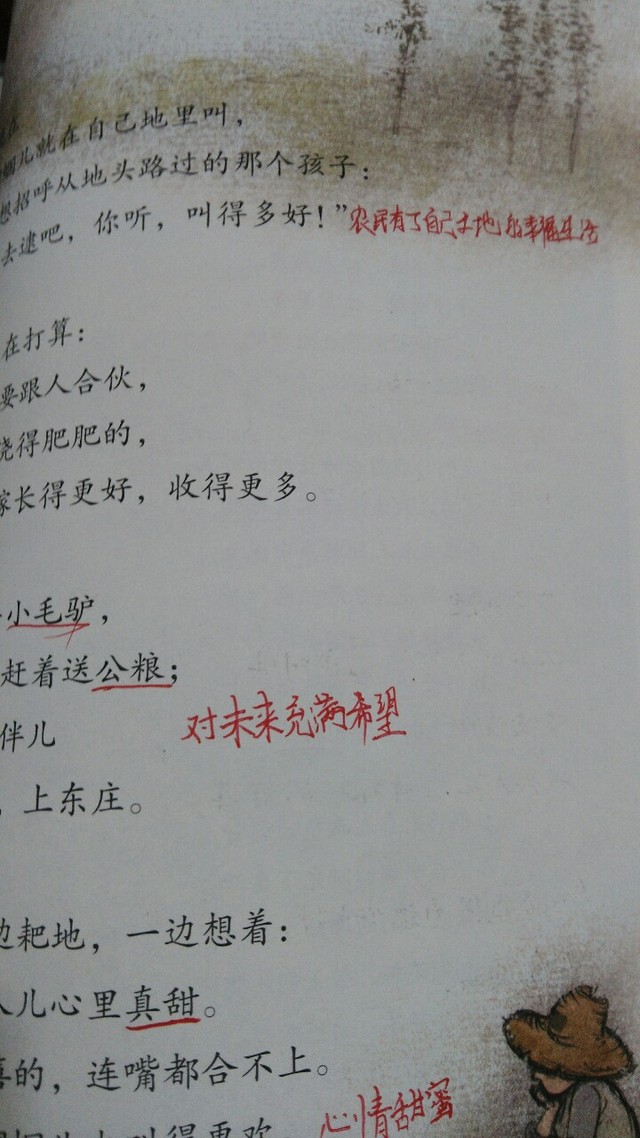 蝈儿就在自己地里叫，
想招呼从地头路过的那个孩子：
去逮吧，你听，叫得多好！”农民有了自己土地的幸福生活
在打算：
要跟人合伙，
浇得肥肥的，
稼长得更好，收得更多。
小毛驴，
赶着送公粮；
对未来充满希望
伴儿
，上东庄。
边耙地，一边想着：
人儿心里真甜。
喜的，连嘴都合不上。
心情甜蜜
叫得更欢